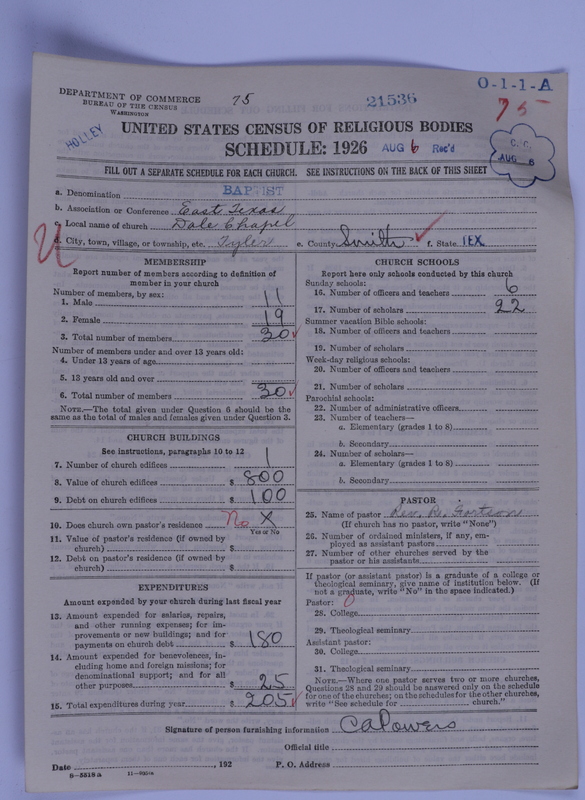 O-1-1-A
DEPARTMENT OF COMMERCE
BUREAU OF THE CENSUS
WASHINGTON
75
21536
75
HOLLEY
UNITED STATES CENSUS OF RELIGIOUS BODIES
SCHEDULE: 1926 AUG 6 Rec'd
C. C.
AUG 6
FILL OUT A SEPARATE SCHEDULE FOR EACH CHURCH. SEE INSTRUCTIONS ON THE BACK OF THIS SHEET
a. Denomination BAPTIST
b. Association or Conference East Texas
c. Local name of church Dale Chapel
d. City, town, village, or township, etc. Tyler e. County Smith f. State TEX
MEMBERSHIP
Report number of members according to definition of
member in your church
Number of members, by sex:
1. Male 11
2. Female 19
3. Total number of members 30
Number of members under and over 13 years old:
4. Under 13 years of age
5. 13 years old and over
6. Total number of members 30
NOTE.—The total given under Question 6 should be the
same as the total of males and females given under Question 3.
CHURCH BUILDINGS
See instructions, paragraphs 10 to 12
7. Number of church edifices 1
8. Value of church edifices $ 800
9. Debt on church edifices $ 100
10. Does church own pastor's residence No X
Yes or No
11. Value of pastor's residence (if owned by
church) $
12. Debt on pastor's residence (if owned by
church) $
EXPENDITURES
Amount expended by your church during last fiscal year
13. Amount expended for salaries, repairs,
and other running expenses; for im-
provements or new buildings; and for
payments on church debt $ 180
14. Amount expended for benevolences, in-
cluding home and foreign missions; for
denominational support; and for all
other purposes $ 25
15. Total expenditures during year $ 205
CHURCH SCHOOLS
Report here only schools conducted by this church
Sunday schools:
16. Number of officers and teachers 6
17. Number of scholars 22
Summer vacation Bible schools:
18. Number of officers and teachers
19. Number of scholars
Week-day religious schools:
20. Number of officers and teachers
21. Number of scholars
Parochial schools:
22. Number of administrative officers
23. Number of teachers—
a. Elementary (grades 1 to 8)
b. Secondary
24. Number of scholars—
a. Elementary (grades 1 to 8)
b. Secondary
PASTOR
25. Name of pastor Rev. R.
(If church has no pastor, write "None")
26. Number of ordained ministers, if any, em-
ployed as assistant pastors
27. Number of other churches served by the
pastor or his assistants
If pastor (or assistant pastor) is a graduate of a college or
theological seminary, give name of institution below. (If
not a graduate, write "No" in the space indicated.)
Pastor:
28. College
29. Theological seminary
Assistant pastor:
30. College
31. Theological seminary
NOTE.—Where one pastor serves two or more churches,
Questions 28 and 29 should be answered only on the schedule
for one of the churches; on the schedules for the other churches,
write "See schedule for church."
Signature of person furnishing information C A Powers
Official title
Date , 192 P. O. Address
8—5518 a